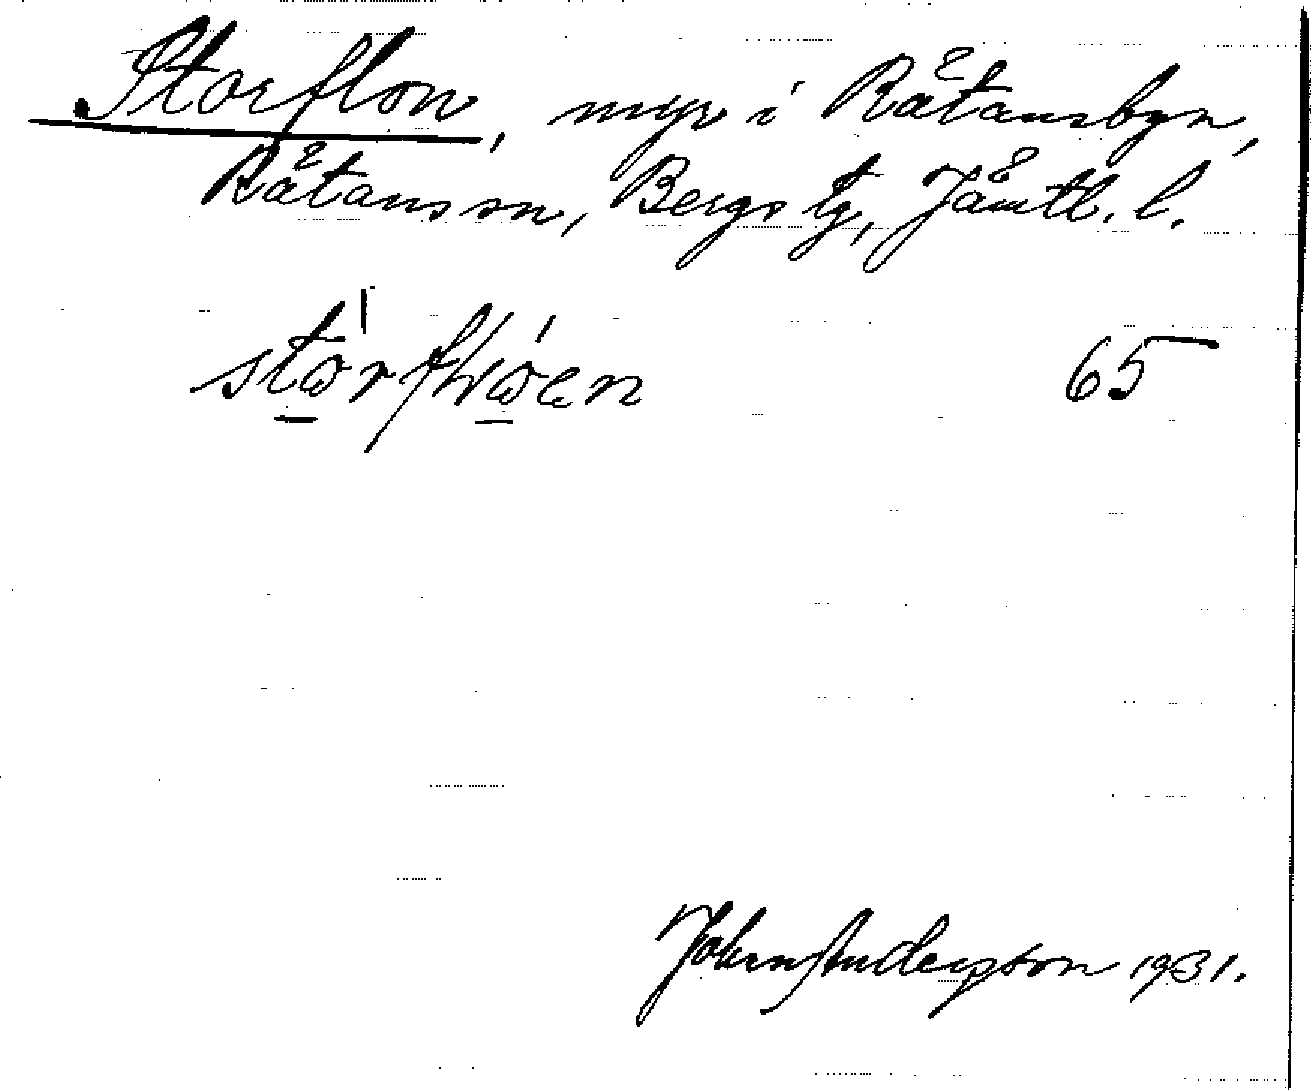 Storflon, myr i Rätansbyn,
Rätans sn, Bergs tg, Jämtl. l.
65
John Anderson 1931.